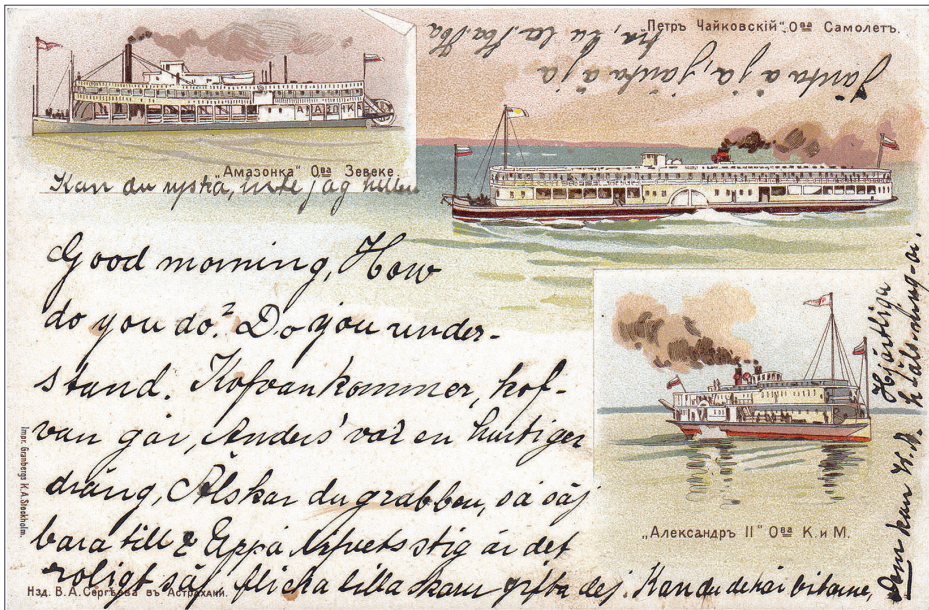 „Петръ Чайковскiй" О-ва Самолетъ.
Jänta å ja, jänta å ja
„Амазонка" О-ва Зевеке.
АМАЗОНКА
Kan du nysta, inte jag heller
Good morning, How
do you do? Do you under-
stand. Kofvan kommer, kof-
van går, Anders var en hurtiger
dräng, Älskar du grabben, så säj
bara till & Uppå lifvets stig är det
roligt säj flicka lilla skam gifta dej. Kan du de här bitarne,
Hjärtliga
„Александръ II" О-ва К. и М.
Impr. Granbergs K.A. Stockholm.
Изд. В. А. Сергѣева въ Астрахани.